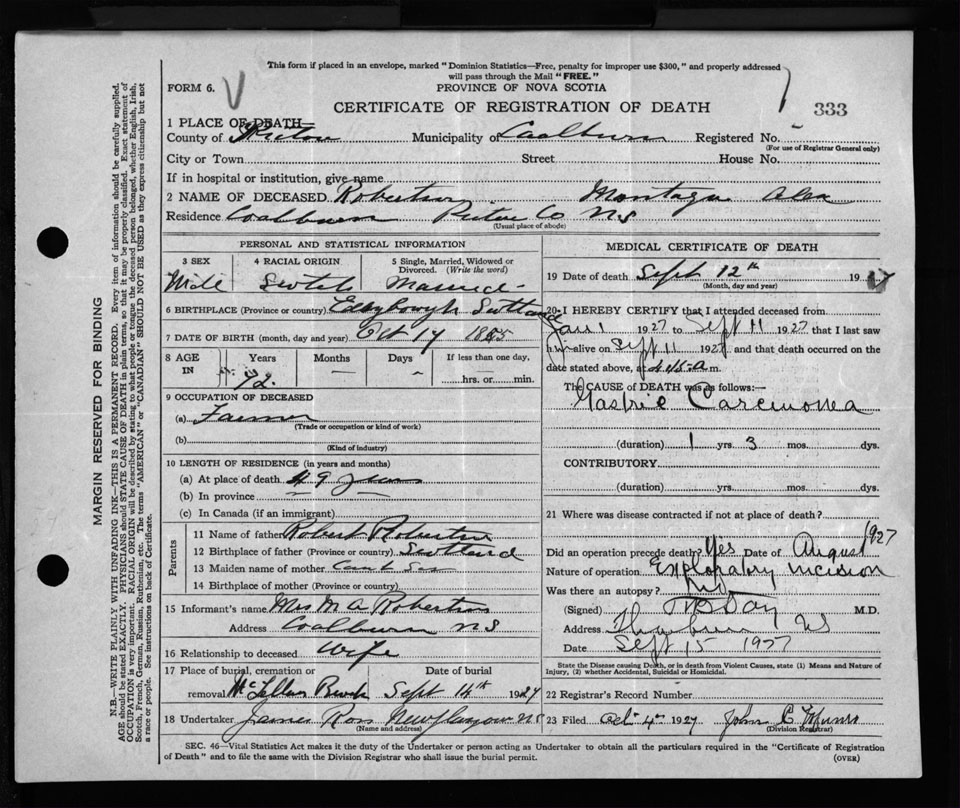 This form if placed in an envelope, marked "Dominion Statistics—Free, penalty for improper use $300," and properly addressed
will pass through the Mail "FREE."
FORM 6.
PROVINCE OF NOVA SCOTIA
CERTIFICATE OF REGISTRATION OF DEATH
333
1 PLACE OF DEATH
County of Pictou Municipality of Coalburn Registered No.
(For use of Registrar General only)
City or Town Street House No.
If in hospital or institution, give name
2 NAME OF DECEASED Robertson Montague Alex
Residence Coalburn Pictou Co NS
(Usual place of abode)
PERSONAL AND STATISTICAL INFORMATION
3 SEX 4 RACIAL ORIGIN 5 Single, Married, Widowed or Divorced. (Write the word)
Male Scotch Married
6 BIRTHPLACE (Province or country) Scotland
7 DATE OF BIRTH (month, day and year) Oct 17
8 AGE IN Years Months Days If less than one day,
72 — — hrs. or min.
9 OCCUPATION OF DECEASED
(a) Farmer
(Trade or occupation or kind of work)
(b)
(Kind of industry)
10 LENGTH OF RESIDENCE (in years and months)
(a) At place of death 49 years
(b) In province — —
(c) In Canada (if an immigrant)
Parents
11 Name of father Robert Robertson
12 Birthplace of father (Province or country) Scotland
13 Maiden name of mother Can't Say
14 Birthplace of mother (Province or country)
15 Informant's name Mrs M A Robertson
Address Coalburn NS
16 Relationship to deceased Wife
17 Place of burial, cremation or removal Date of burial
Sept 14th 1927
18 Undertaker James Ross New Glasgow NS
(Name and address)
MEDICAL CERTIFICATE OF DEATH
19 Date of death Sept 12th 19
(Month, day and year)
20 I HEREBY CERTIFY that I attended deceased from
Jan 1 1927 to Sept 11 1927 that I last saw
him alive on Sept 11 1927 and that death occurred on the
date stated above, at a.m.
The CAUSE OF DEATH was as follows:—
Gastric Carcinoma
(duration) 1 yrs. 3 mos. dys.
CONTRIBUTORY
(duration) yrs. mos. dys.
21 Where was disease contracted if not at place of death?
Did an operation precede death? Yes Date of August 1927
Nature of operation Exploratory incision
Was there an autopsy?
(Signed) Day M.D.
Address Thorburn NS
Date Sept 15 1927
State the Disease causing Death, or in death from Violent Causes, state (1) Means and Nature of
Injury, (2) whether Accidental, Suicidal or Homicidal.
22 Registrar's Record Number
23 Filed Oct 4th 1927 John C Munro
(Division Registrar)
SEC. 46—Vital Statistics Act makes it the duty of the Undertaker or person acting as Undertaker to obtain all the particulars required in the "Certificate of Registration
of Death" and to file the same with the Division Registrar who shall issue the burial permit.
(OVER)
MARGIN RESERVED FOR BINDING
N.B.—WRITE PLAINLY WITH UNFADING INK—THIS IS A PERMANENT RECORD. Every item of information should be carefully supplied.
AGE should be stated EXACTLY. PHYSICIANS should STATE CAUSE OF DEATH in plain terms, so that it may be properly classified. Exact statement of
OCCUPATION is very important. RACIAL ORIGIN will be described by stating to what people or tongue the deceased person belonged, whether English, Irish,
Scotch, French, German, Russian, Ruthenian, etc. The terms "AMERICAN" or "CANADIAN" SHOULD NOT BE USED as they express citizenship but not
a race or people. See instructions on back of Certificate.